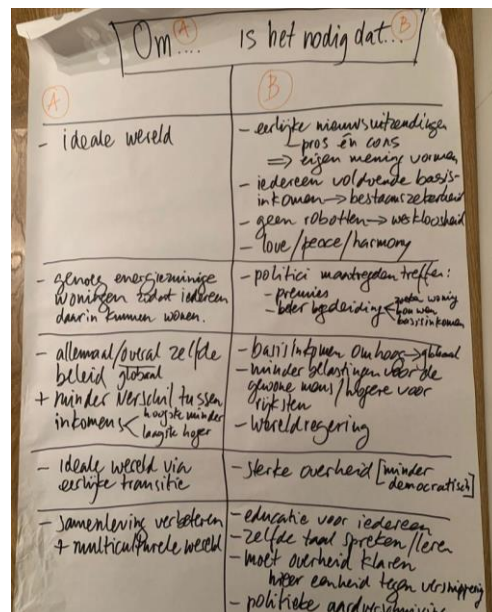 Om.... is het nodig dat...
A B
A B
- ideale wereld
- eerlijke nieuwsuitzendingen
pros én cons
=> eigen mening vormen
- iedereen voldoende basis-
inkomen → bestaanszekerheid
- geen robotten → werkloosheid
- love/peace/harmony
- genoeg energiezuinige
woningen zodat iedereen
daarin kunnen wonen.
- politici maatregelen treffen:
- premies
- beter begeleiding
woning
bouwen
basisinkomen
- allemaal/overal zelfde
beleid globaal
+ minder verschil tussen
inkomens
hoogste minder
laagste hoger
- basisinkomen omhoog → globaal
- minder belastingen voor de
gewone mens/hogere voor
rijksten
- wereldregering
- ideale wereld via
eerlijke transitie
- sterke overheid [minder
democratisch]
- samenleving verbeteren
+ multiculturele wereld
- educatie voor iedereen
- zelfde taal spreken/leren
- moet overheid klaren
meer eenheid tegen versnippering
- politieke